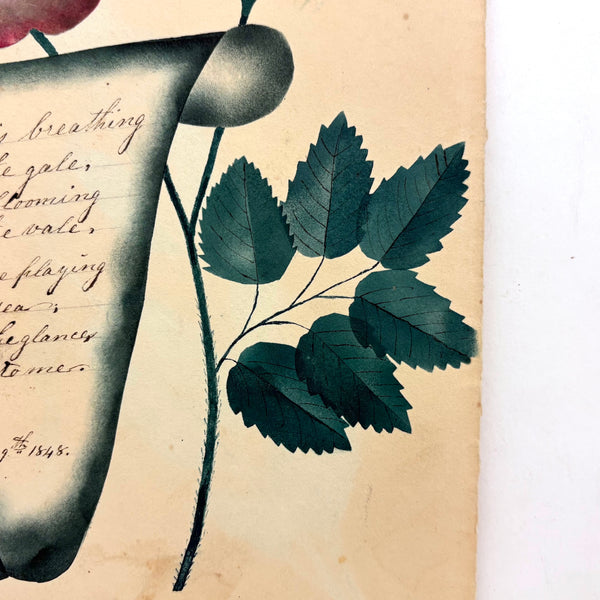 breathing
gale,
looming
vale,
e playing
sea;
glances
to me.
9th 1848.